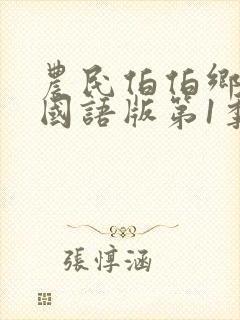 農民伯伯鄉
國語版第1季
張惇涵